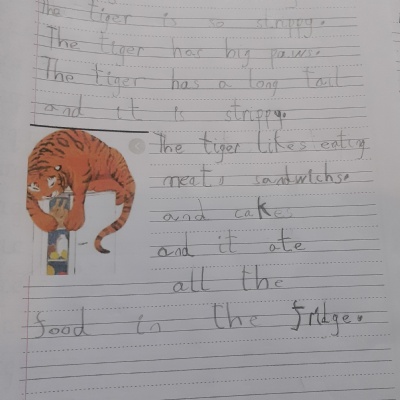 The tiger is so strippy.
The tiger has big paws.
The tiger has a long tail
and it is strippy.
The tiger likes eating
meat, sandwichs.
and cakes
and it ate
all the
food in the fridge.